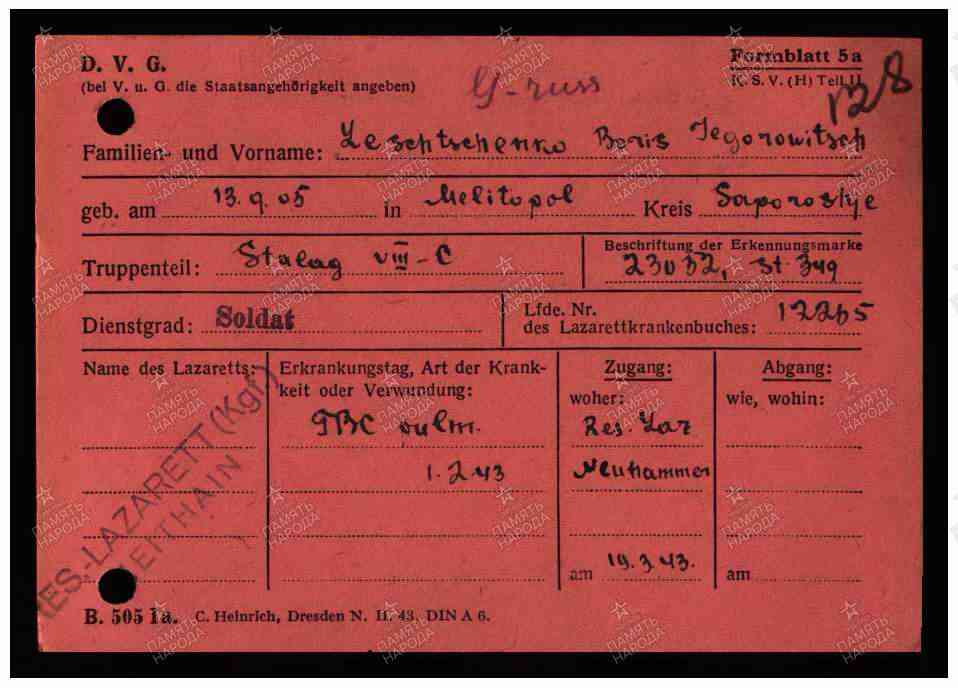 D. V. G.
(bei V. u. G. die Staatsangehörigkeit angeben)
G-russ
Formblatt 5a
K. S. V. (H) Teil II
Familien- und Vorname: Leschtschenko Boris Jegorowitsch
geb. am 13.9.05 in Melitopol Kreis Saporoshje
Truppenteil: Stalag VIII-C
Beschriftung der Erkennungsmarke
23032, St.
Dienstgrad: Soldat
Lfde. Nr.
des Lazarettkrankenbuches: 12265
Name des Lazaretts:
RES.-LAZARETT (Kgf.)
ZEITHAIN
Erkrankungstag, Art der Krank-
keit oder Verwundung:
TBC pulm.
1.2.43
Zugang:
woher:
Res. Laz
Neuhammer
am 19.3.43.
Abgang:
wie, wohin:
am
B. 505 1a. C. Heinrich, Dresden N. II. 43. DIN A 6.
ПАМЯТЬ
НАРОДА